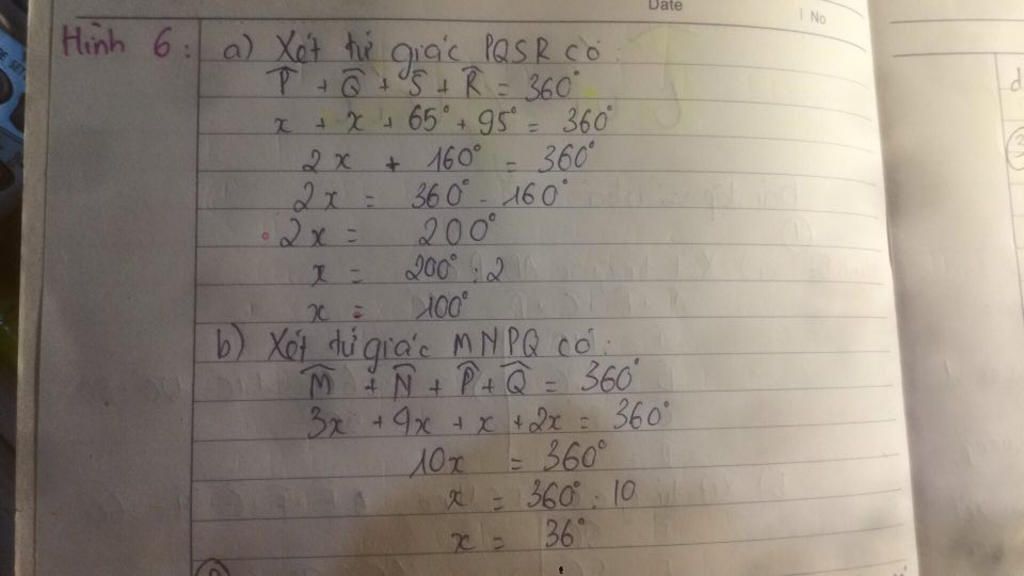 Date
No
Hình 6: a) Xét tứ giác PQSR có:
P̂ + Q̂ + Ŝ + R̂ = 360°
x + x + 65° + 95° = 360°
2x + 160° = 360°
2x = 360° - 160°
2x = 200°
x = 200° : 2
x = 100°
b) Xét tứ giác MNPQ có:
M̂ + N̂ + P̂ + Q̂ = 360°
3x + 4x + x + 2x = 360°
10x = 360°
x = 360° : 10
x = 36°